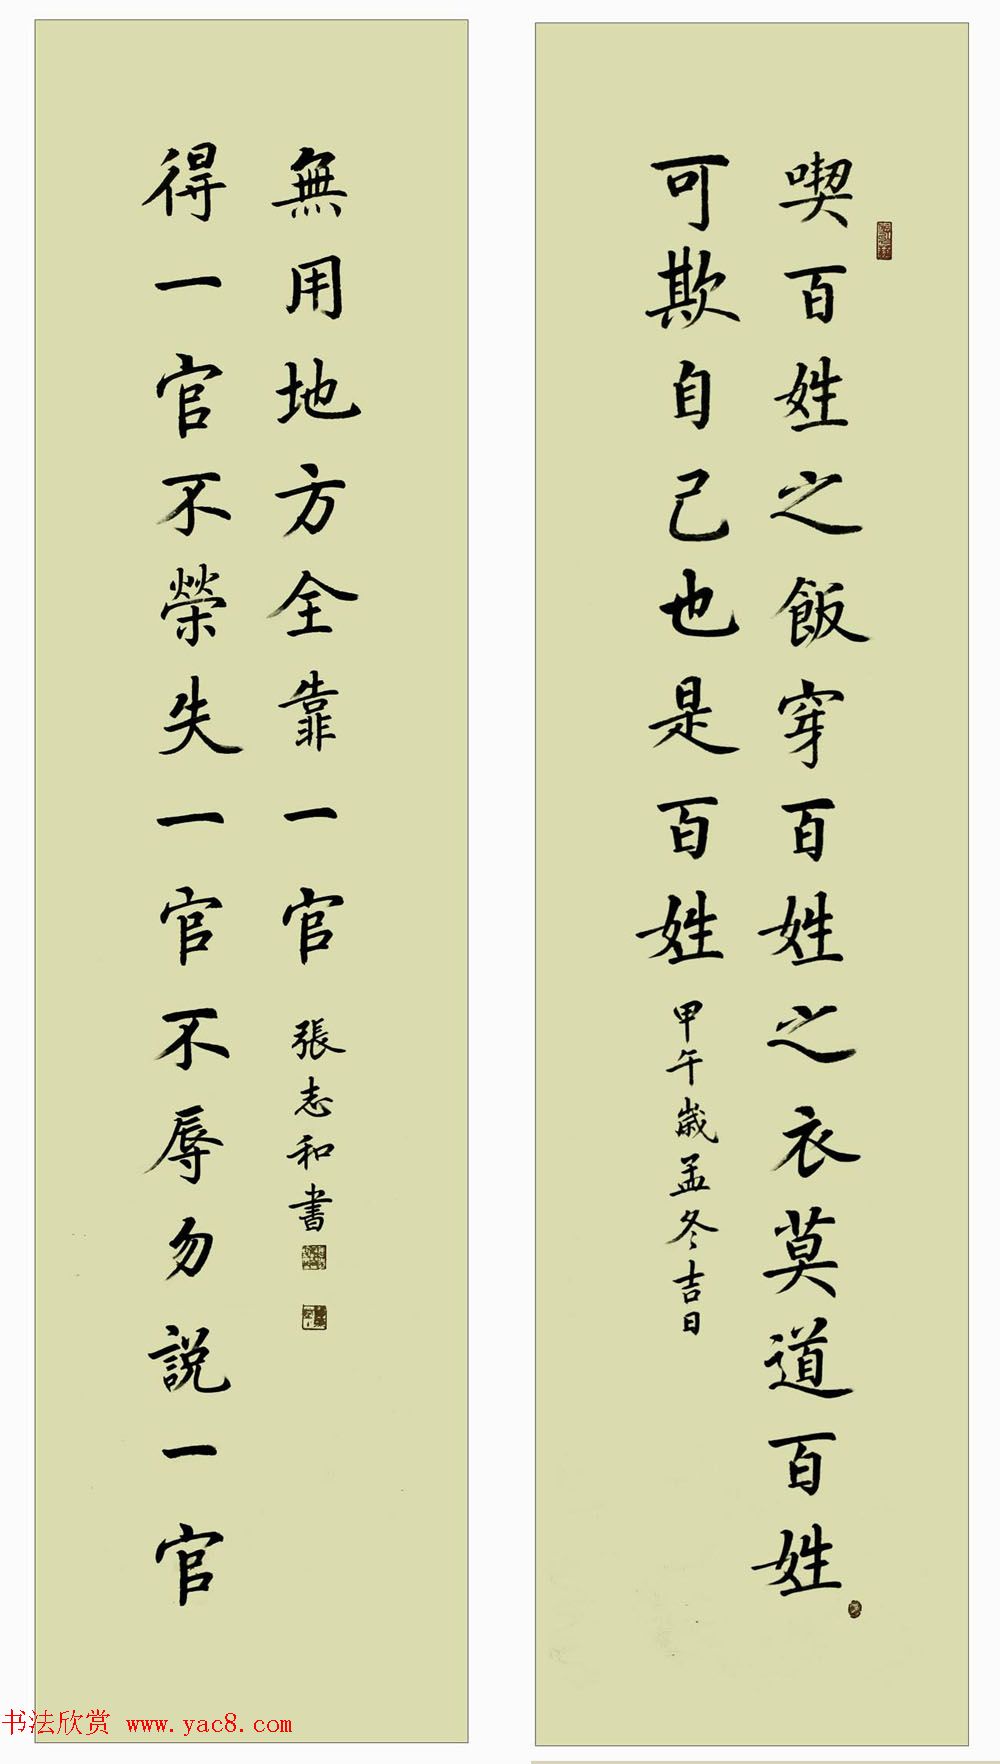 喫百姓之飯穿百姓之衣莫道百姓
可欺自己也是百姓
甲午歲孟冬吉日
得一官不榮失一官不辱勿説一官
無用地方全靠一官
張志和書
书法欣赏 www.yac8.com